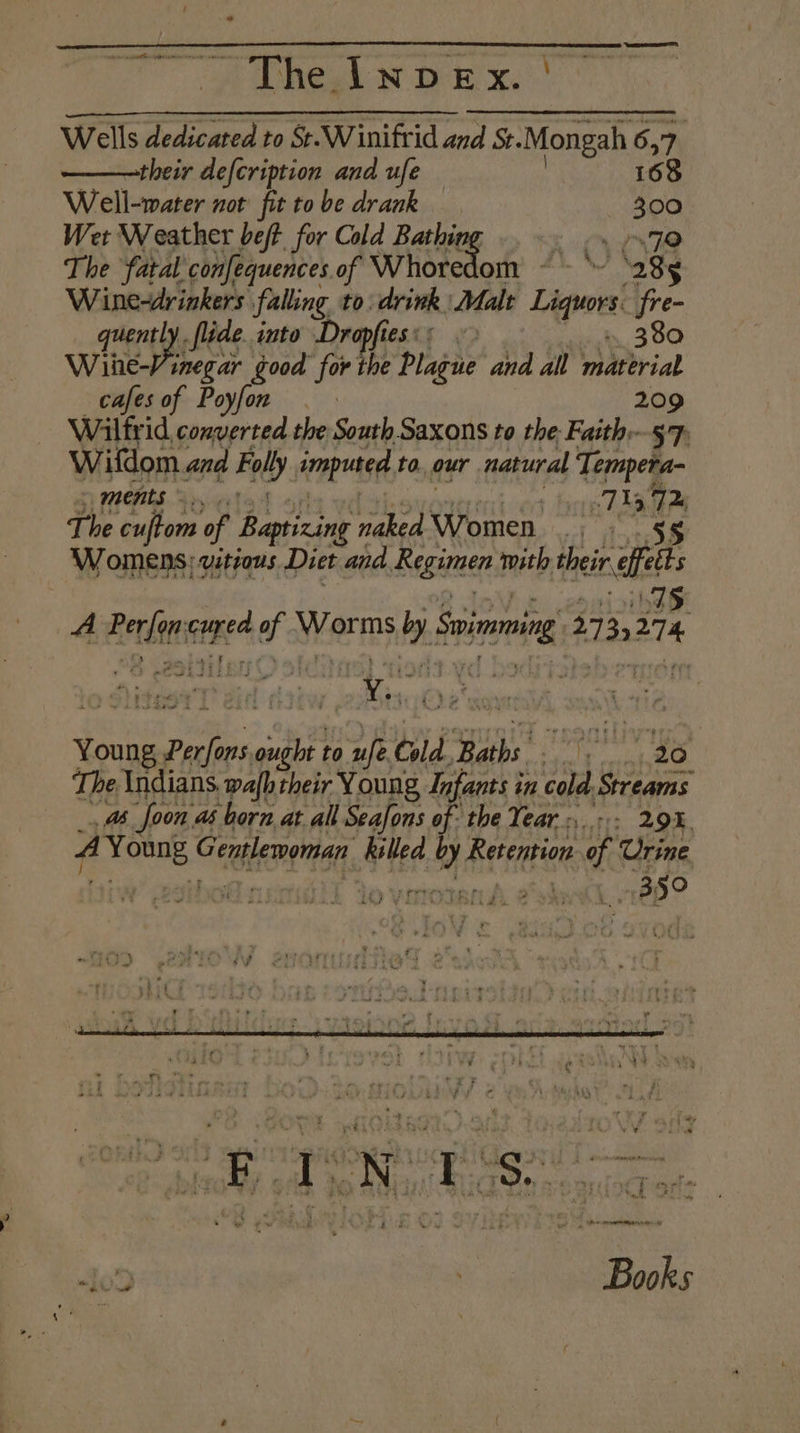 The INDEX.
Wells dedicated to St.Winifrid and St.Mongah 6,7
——their deſcription and uſe 168
Well-water not fit to be drank 300
Wet Weather beſt for Cold Bathing 70
The fatal conſequences of Whoredom 285
Wine-drinkers falling to drink Malt Liquors fre-
quently ſlide into Dropſies 380
Wine-Vinegar good for the Plague and all material
caſes of Poyſon 209
Wilfrid converted the South Saxons to the Faith 57
Wiſdom and Folly imputed to our natural Tempera-
ments 71, 72
The cuſtom of Baptizing naked Women 55
Womens vitious Diet and Regimen with their effects
75
A Perſon cured of Worms by Swimming 273, 274
Y.
Young Perſons ought to uſe Cold Baths 20
The Indians waſh their Young Infants in cold Streams
as ſoon as born at all Seaſons of the Year 291
A Young Gentlewoman killed by Retention of Urine
350
F I N I S.
Books